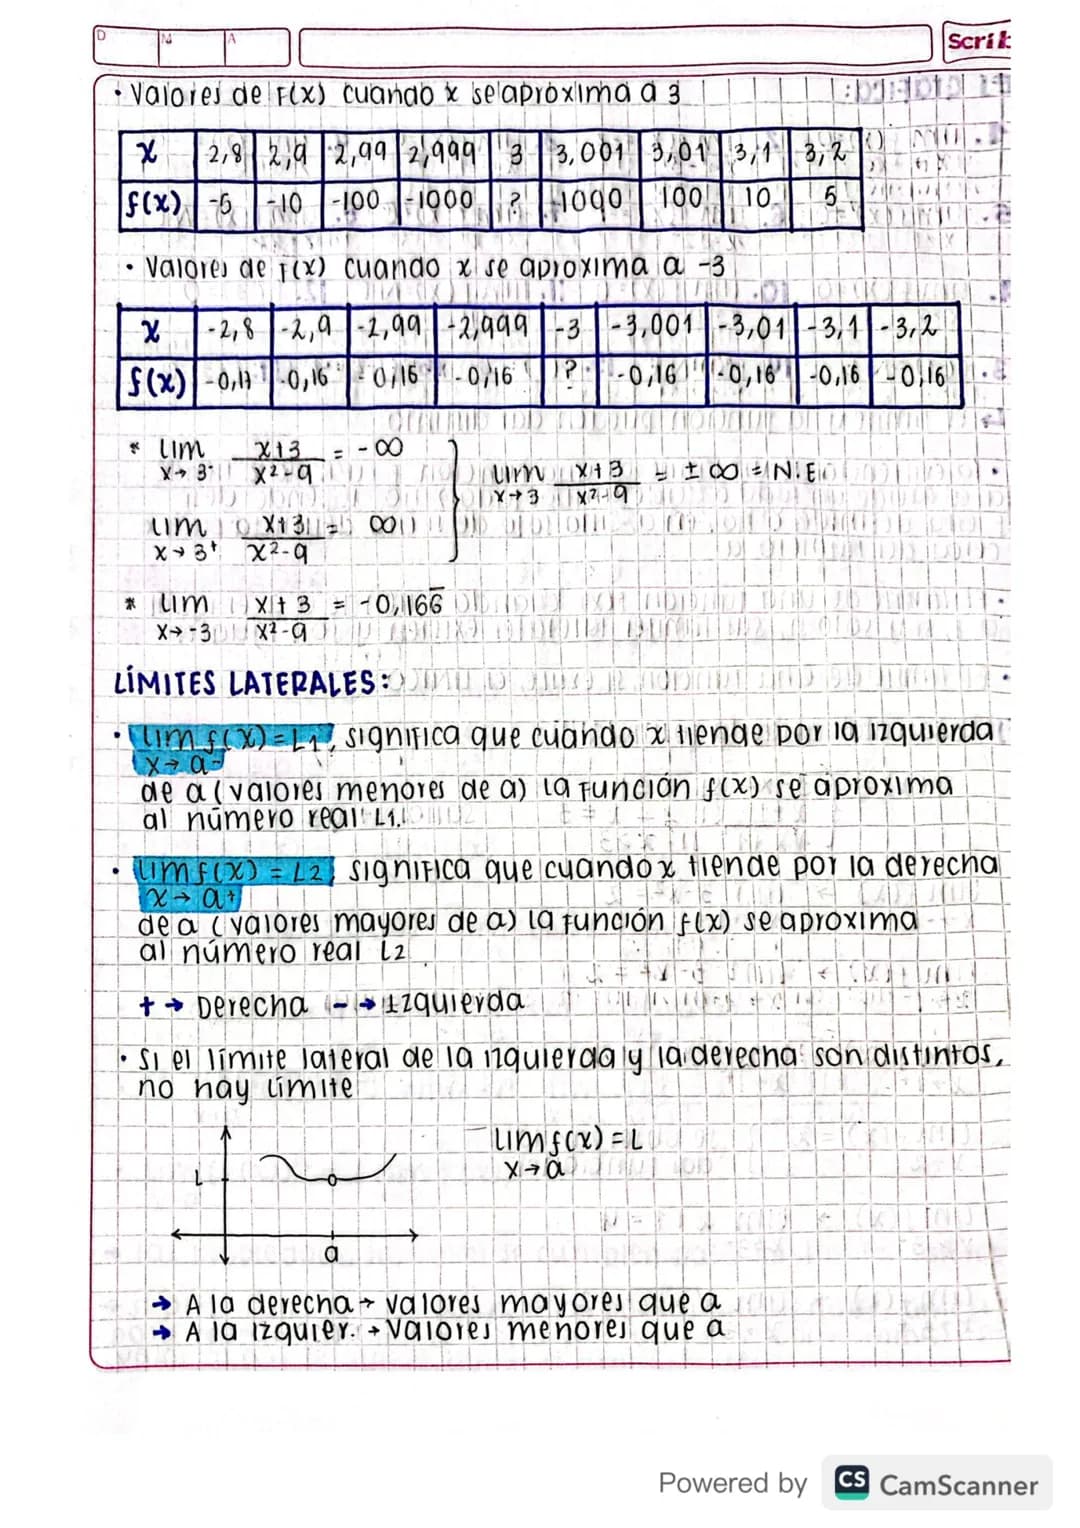 D M A
Scrib
• Valores de F(x) cuando x se aproxima a 3
x 2,8 2,9 2,99 2,999 3 3,001 3,01 3,1 3,2
f(x) -5 -10 -100 -1000 ? 1000 100 10 5
• Valores de F(x) cuando x se aproxima a -3
x -2,8 -2,9 -2,99 -2,999 -3 -3,001 -3,01 -3,1 -3,2
f(x) -0,17 -0,16 -0,16 -0,16 ? -0,16 -0,16 -0,16 -0,16
* lim x→3⁻ x+3 / x²-9 = -∞
lim x→3⁺ x+3 / x²-9 = ∞
lim x→3 x+3 / x²-9 = ±∞ = N.E
* lim x→-3 x+3 / x²-9 = -0,166̅
LÍMITES LATERALES:
• lim f(x) = L1, significa que cuando x tiende por la izquierda
x→a⁻
de a (valores menores de a) la función f(x) se aproxima
al número real L1.
• lim f(x) = L2, significa que cuando x tiende por la derecha
x→a⁺
de a (valores mayores de a) la función f(x) se aproxima
al número real L2
+ → Derecha - → Izquierda
• Si el límite lateral de la izquierda y la derecha son distintos,
no hay límite
lim f(x) = L
x→a
L
a
→ A la derecha → valores mayores que a
→ A la izquier. → valores menores que a
Powered by CS CamScanner